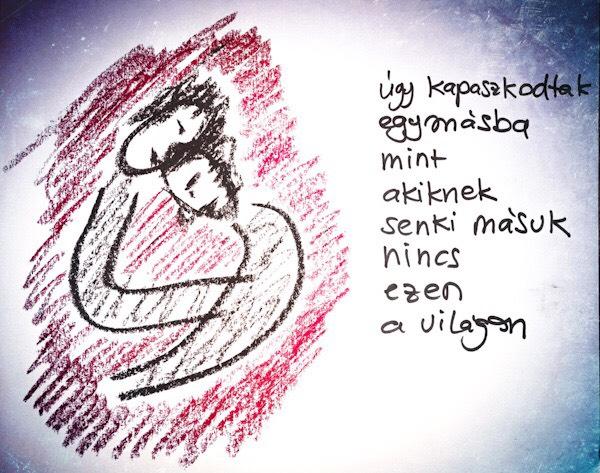 úgy kapaszkodtak
egymásba
mint
akiknek
senki másuk
nincs
ezen
a világon